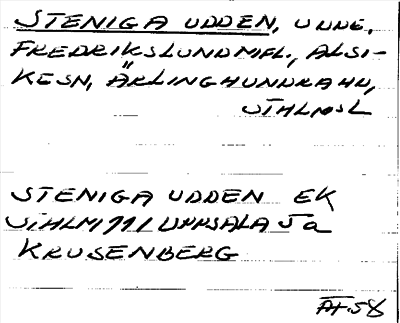 STENIGA UDDEN, UDDE,
FREDRIKSLUND MFL., ALSI-
KE SN, ÄRLINGHUNDRA HD,
STHLMS L
STENIGA UDDEN EK
STHLM 99/ UPPSALA Ja
KRUSENBERG
AT-58